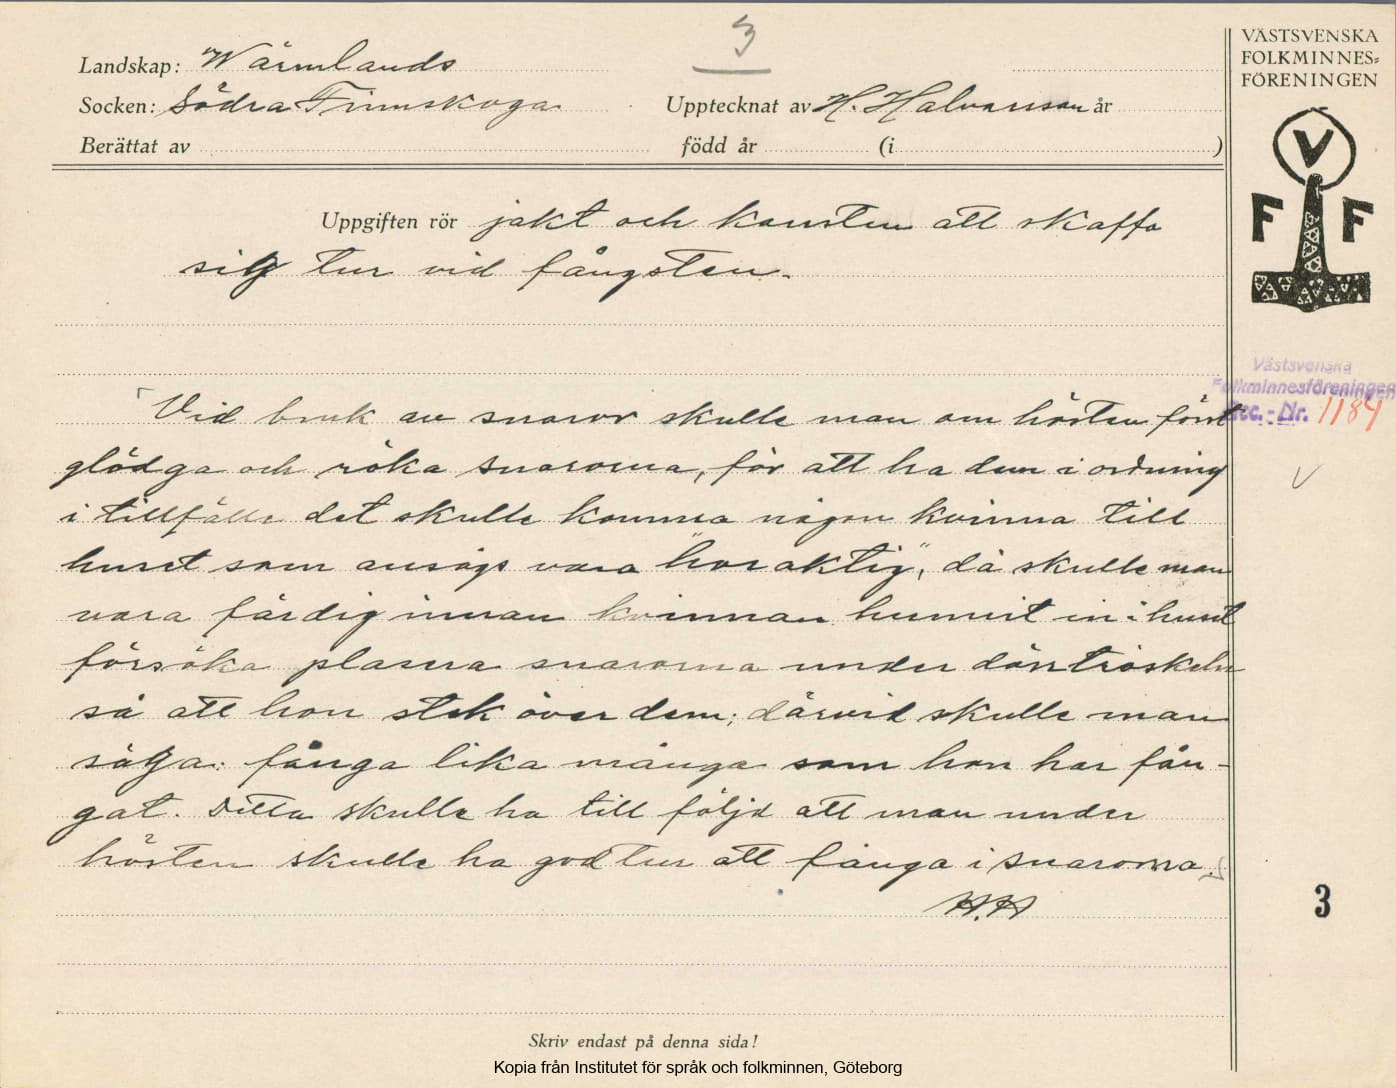 3
VÄSTSVENSKA
FOLKMINNES=
FÖRENINGEN
Landskap: Wärmlands
Socken: Södra Finnskoga Upptecknat av H. Halvarsson år
Berättat av född år (i )
V
F F
Uppgiften rör jakt och konsten att skaffa
sig tur vid fångsten.
Västsvenska
Folkminnesföreningen
Acc.-Nr. 1184
Vid bruk av snaror skulle man om hösten först
glödga och röka snarorna, för att ha dem i ordning
i tillfälle det skulle komma någon kvinna till
huset som ansågs vara "horaktig", då skulle man
vara färdig innan kvinnan hunnit in i huset
försöka plasera snarorna under dörrtröskeln
så att hon stek över dem; därvid skulle man
säga: fånga lika många som hon har fån-
gat. Detta skulle ha till följd att man under
hösten skulle ha god tur att fånga i snarorna.
H.H
3
Skriv endast på denna sida!
Kopia från Institutet för språk och folkminnen, Göteborg